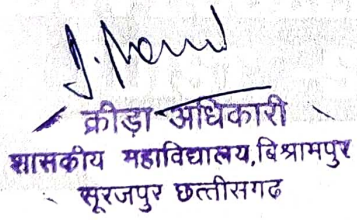 क्रीड़ा अधिकारी
शासकीय महाविद्यालय,बिश्रामपुर
सूरजपुर छत्तीसगढ